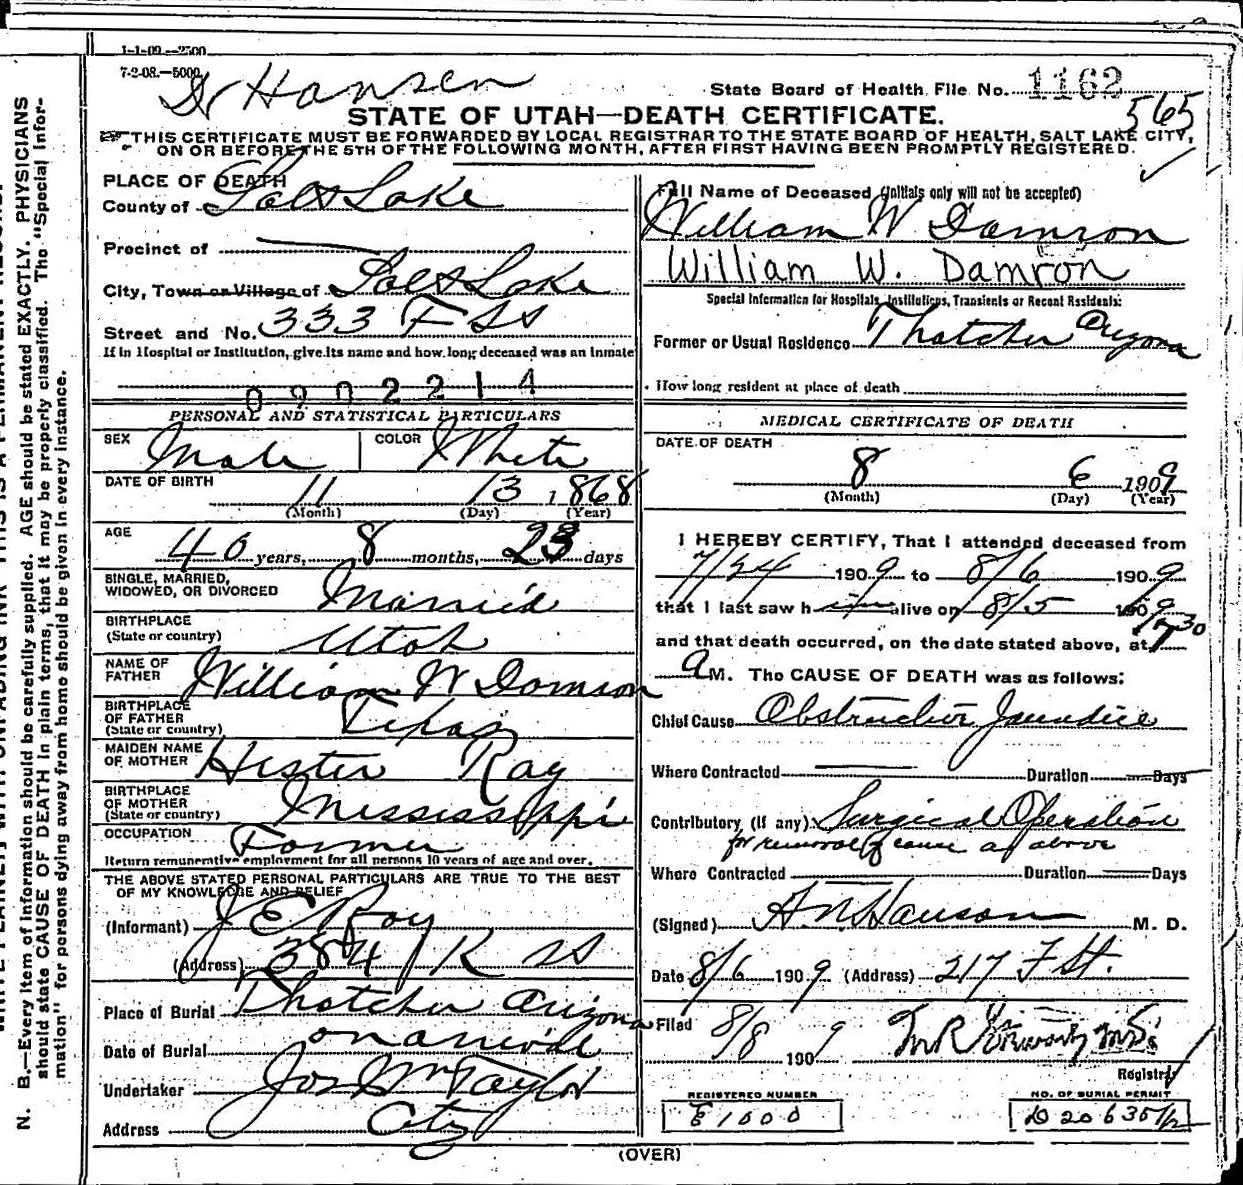 1-1-09.—2500
7-2-08.—5000
Dr Hansen
State Board of Health File No. 1162
565
STATE OF UTAH—DEATH CERTIFICATE.
THIS CERTIFICATE MUST BE FORWARDED BY LOCAL REGISTRAR TO THE STATE BOARD OF HEALTH, SALT LAKE CITY,
ON OR BEFORE THE 5TH OF THE FOLLOWING MONTH, AFTER FIRST HAVING BEEN PROMPTLY REGISTERED.
PLACE OF DEATH
County of Salt Lake
Precinct of
City, Town or Village of Salt Lake
Street and No. 333 F St
If in Hospital or Institution, give its name and how long deceased was an inmate
0902214
PERSONAL AND STATISTICAL PARTICULARS
SEX Male COLOR White
DATE OF BIRTH 11 13 1868
(Month) (Day) (Year)
AGE 40 years, 8 months, 23 days
SINGLE, MARRIED,
WIDOWED, OR DIVORCED Married
BIRTHPLACE
(State or country) Utah
NAME OF
FATHER William W Damron
BIRTHPLACE
OF FATHER
(State or country) Texas
MAIDEN NAME
OF MOTHER Hester Ray
BIRTHPLACE
OF MOTHER
(State or country) Mississippi
OCCUPATION Farmer
Return remunerative employment for all persons 10 years of age and over.
THE ABOVE STATED PERSONAL PARTICULARS ARE TRUE TO THE BEST
OF MY KNOWLEDGE AND BELIEF
(Informant) J E Ray
(Address) 384 K St
Place of Burial Thatcher Arizona
Date of Burial on arrival
Undertaker Jos Wm Taylor
Address City
Full Name of Deceased (Initials only will not be accepted)
William W Damron
William W. Damron
Special Information for Hospitals, Institutions, Transients or Recent Residents:
Former or Usual Residence Thatcher Arizona
How long resident at place of death
MEDICAL CERTIFICATE OF DEATH
DATE OF DEATH
8 6 1909
(Month) (Day) (Year)
I HEREBY CERTIFY, That I attended deceased from
7/24 1909 to 8/6 1909
that I last saw him alive on 8/5 1909
and that death occurred, on the date stated above, at 7 30
A M. The CAUSE OF DEATH was as follows:
Chief Cause Obstructive Jaundice
Where Contracted Duration Days
Contributory (if any) Surgical Operation
for removal of cause as above
Where Contracted Duration Days
(Signed) H. N. Hanson M. D.
Date 8/6 1909 (Address) 217 F St.
Filed 8/8 1909
Registrar
REGISTERED NUMBER
E 1000
NO. OF BURIAL PERMIT
D 20635 1/2
(OVER)
N. B.—Every item of information should be carefully supplied. AGE should be stated EXACTLY. PHYSICIANS
should state CAUSE OF DEATH in plain terms, that it may be properly classified. The "Special Infor-
mation" for persons dying away from home should be given in every instance.